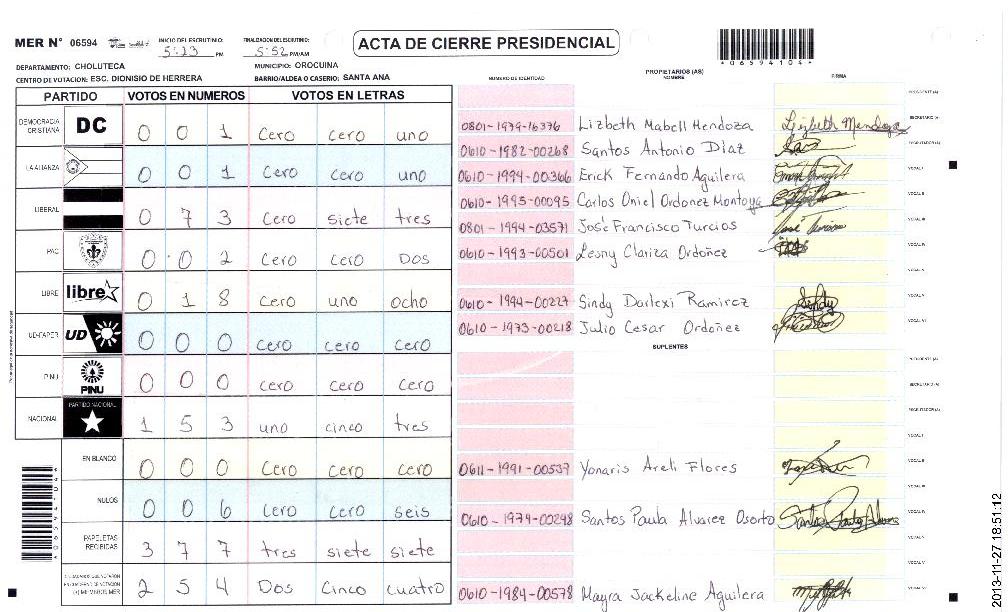 MER Nº 06594 INICIO DEL ESCRUTINIO: 5:23 PM FINALIZACION DEL ESCRUTINIO: 5:52 PM/AM ACTA DE CIERRE PRESIDENCIAL
*06594104*
DEPARTAMENTO: CHOLUTECA MUNICIPIO: OROCUINA
CENTRO DE VOTACION: ESC. DIONISIO DE HERRERA BARRIO/ALDEA O CASERIO: SANTA ANA
NUMERO DE IDENTIDAD PROPIETARIOS (AS) NOMBRE FIRMA
PARTIDO VOTOS EN NUMEROS VOTOS EN LETRAS
DEMOCRACIA CRISTIANA DC 0 0 1 Cero cero uno
LA ALIANZA 0 0 1 Cero cero uno
LIBERAL 0 7 3 Cero siete tres
PAC 0 0 2 Cero Cero Dos
LIBRE libre 0 1 8 Cero uno ocho
UD-FAPER UD 0 0 0 Cero Cero Cero
PINU PINU 0 0 0 Cero Cero Cero
NACIONAL PARTIDO NACIONAL 1 5 3 uno cinco tres
EN BLANCO 0 0 0 Cero Cero Cero
NULOS 0 0 6 Cero Cero seis
PAPELETAS RECIBIDAS 3 7 7 tres siete siete
2 5 4 Dos Cinco cuatro
PRESIDENTE (A)
0801-1979-16376 Lizbeth Mabell Mendoza Lizbeth Mendoza SECRETARIO (A)
0610-1982-00268 Santos Antonio Diaz ESCRUTADOR (A)
0610-1994-00366 Erick Fernando Aguilera VOCAL I
0610-1995-00095 Carlos Oniel Ordonez Montoya VOCAL II
0801-1994-03571 José Francisco Turcios VOCAL III
0610-1993-00501 Lesny Clariza Ordoñez VOCAL IV
VOCAL V
0610-1994-00227 Sindy Darlexi Ramirez Sindy
0610-1973-00218 Julio Cesar Ordoñez
SUPLENTES
PRESIDENTE (A)
SECRETARIO (A)
ESCRUTADOR (A)
VOCAL I
0611-1991-00539 Yonaris Areli Flores VOCAL II
VOCAL III
0610-1974-00248 Santos Paula Alvarez Osorto
VOCAL V
0610-1984-00578 Mayra Jackeline Aguilera
*06594104*
2013-11-27 18:51:12